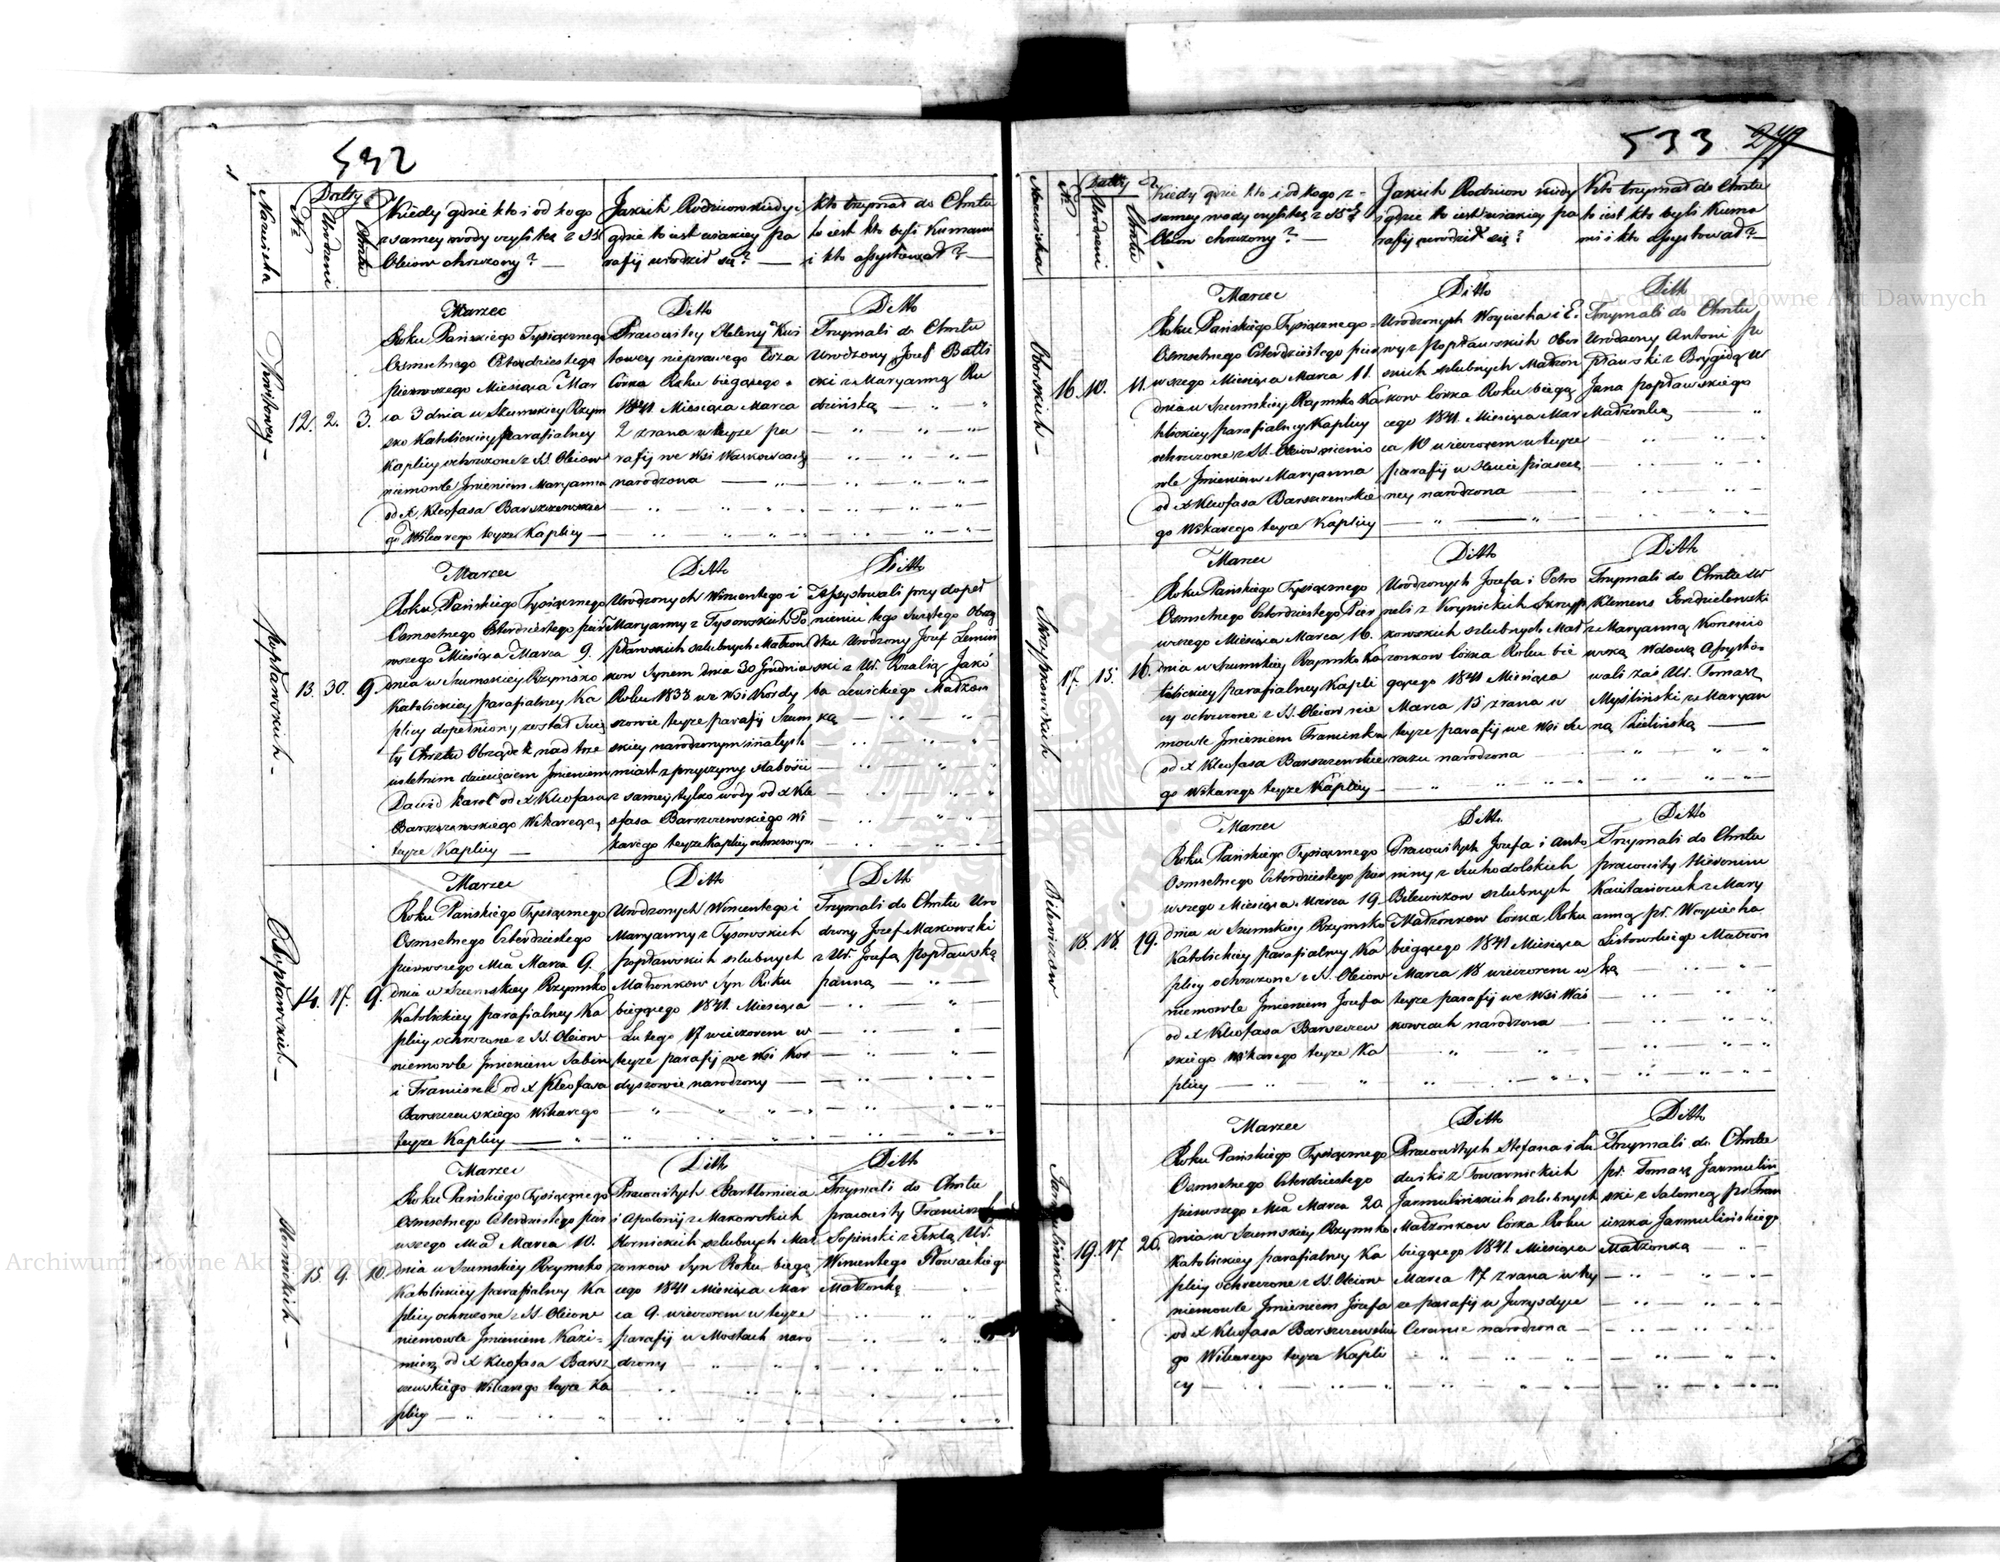 532
Nazwiska
Nr
Datty
Urodzeni
Chrztu
Kiedy gdzie kto i od kogo
z samey wody czyli też z SS
Oleiow chrzczony? —
Jakich Rodziców kiedy i
gdzie to iest wiakiey pa
rafij urodził się? —
kto trzymał do Chrztu
to iest kto byli Kumami
i kto assystował? —
Marzec
Ditto
Ditto
12. 2. 3.
Roku Pańskiego Tysiącznego
Osmsetnego Czterdziestego
pierwszego Miesiąca Mar
ca 3 dnia w Szumskiey Rzym
sko Katolickiey parafialney
Kaplicy ochrzczone z SS. Oleiow
niemowle Jmieniem Maryanna
od X. Kleofasa Barszczewskie
go Wikarego teyże Kaplicy —
Pracowitey Heleny Kwi
towey nieprawego Łoża
Córka Roku biegącego
1841. Miesiąca Marca
2 zrana w teyże pa
rafij we Wsi Waskowcach
narodzona —
Trzymali do Chrztu
Urodzony Jozef Balli
cki z Maryanną Ru
dzińską —
Popławskich —
Marzec
Ditto
Ditto
13. 30. 9.
Roku Pańskiego Tysiącznego
Osmsetnego Czterdziestego pier
wszego Miesiąca Marca 9.
dnia w Szumskiey Rzymsko
Katolickiey parafialney Ka
plicy dopełniony został Swię
ty Chrztu Obrządek nad trze
usletnim dziecięciem Jmieniem
Dawid Karol od X Kleofasa
Barszczewskiego Wikarego
teyże Kaplicy —
Urodzonych Wincentego i
Maryanny z Tysowskich Po
pławskich szlubnych Małżon
kow Synem dnia 30 Grudnia
Roku 1838 we Wsi Kordy
szowie teyże parafij Szum
skiey narodzonym i natych
miast z przyczyny słabości
z samey tylko wody od X Kle
ofasa Barszczewskiego Wi
karego teyże Kaplicy ochrzczonym
Assystowali przy dopeł
nieniu tego Swiętego Obrzą
dku Urodzony Jozef Lemin
ski z Ur. Rozalią Jakó
ba Lewickiego Małżon
ką —
Popławskich —
Marzec
Ditto
Ditto
14. 17. 9.
Roku Pańskiego Tysiącznego
Osmsetnego Czterdziestego
pierwszego Mca Marca 9.
dnia w Szumskiey Rzymsko
Katolickiey parafialney Ka
plicy ochrzczone z SS. Oleiow
niemowle Jmieniem Sabin
i Franciszek od X Kleofasa
Barszczewskiego Wikarego
teyże Kaplicy —
Urodzonych Wincentego i
Maryanny z Tysowskich
Popławskich szlubnych
Małżonkow Syn Roku
biegącego 1841. Miesiąca
Lutego 17 wieczorem w
teyże parafij we Wsi Kor
dyszowie narodzony —
Trzymali do Chrztu Uro
dzony Jozef Makowski
z Ur. Jozefą Popławską
panną —
Hornickich —
Marzec
Ditto
Ditto
15. 9. 10.
Roku Pańskiego Tysiącznego
Osmsetnego Czterdziestego pier
wszego Mca Marca 10.
dnia w Szumskiey Rzymsko
Katolickiey parafialney Ka
plicy ochrzczone z SS. Oleiow
niemowle Jmieniem Kazi-
mierz od X Kleofasa Barsz
czewskiego Wikarego teyże Ka
plicy —
Pracowitych Bartłomieia
i Apolonij z Makowskich
Hornickich szlubnych Mał
żonkow Syn Roku biegą
cego 1841 Miesiąca Mar
ca 9. wieczorem w teyże
parafij w Mostach naro
dzony
Trzymali do Chrztu
pracowity Franciszek
Łopiński z Teklą Ur.
Wincentego Głowackiego
Małżonką
533 249
Nazwiska
Nr
Datty
Urodzeni
Chrztu
Kiedy gdzie kto i od kogo z-
samey wody czyli też z SSch
Oleiow chrzczony? —
Jakich Rodziców kiedy
i gdzie to iest wiakiey pa
rafij urodził się?
Kto trzymał do Chrztu
to iest kto byli Kuma
mi i kto assystował? —
Oborskich —
Marzec
Ditto
Ditto
16. 10. 11.
Roku Pańskiego Tysiącznego
Osmsetnego Czterdziestego pier
wszego Miesiąca Marca 11.
dnia w Szumskiey Rzymsko Ka
tolickiey parafialney Kaplicy
ochrzczone z SS. Oleiow niemo
wle Jmieniem Maryanna
od X Kleofasa Barszczewskie
go Wikarego teyże Kaplicy
Urodzonych Woyciecha i E.
wy z Popławskich Obor
skich szlubnych Małżon
kow Córka Roku biegą
cego 1841. Miesiąca Mar
ca 10 wieczorem w teyże
parafij w Hucie piasecz
ney narodzona
Trzymali do Chrztu
Urodzony Antoni Po
pławski z Brygidą Ur
Jana Popławskiego
Małżonką —
Skrzypkowskich
Marzec
Ditto
Ditto
17. 15. 16.
Roku Pańskiego Tysiącznego
Osmsetnego Czterdziestego Pier
wszego Miesiąca Marca 16.
dnia w Szumskiey Rzymsko Ka
tolickiey parafialney Kapli
cy ochrzczone z SS. Oleiow nie
mowle Jmieniem Franciszka
od X Kleofasa Barszczewskie
go Wikarego teyże Kaplicy —
Urodzonych Jozefa i Petro
neli z Krynickich Skrzyp
kowskich szlubnych Mał
żonkow Córka Roku bie
gącego 1841 Miesiąca
Marca 15 zrana w
teyże parafij we Wsi Su
rażu narodzona
Trzymali do Chrztu Ur
Klemens Gordzielewski
z Maryanną Korzenio
wską Wdową Assysto-
wali zaś Ur. Tomasz
Myśliński z Maryan
ną Zielińską —
Bilewiczow
Marzec
Ditto
Ditto
18. 18. 19.
Roku Pańskiego Tysiącznego
Osmsetnego Czterdziestego pier
wszego Miesiąca Marca 19.
dnia w Szumskiey Rzymsko
Katolickiey parafialney Ka
plicy ochrzczone z SS. Oleiow
niemowle Jmieniem Jozefa
od X Kleofasa Barszczew
skiego Wikarego teyże Ka
plicy —
Pracowitych Jozefa i Anto
niny z Suchodolskich
Bilewiczow szlubnych
Małżonkow Córka Roku
biegącego 1841 Miesiąca
Marca 18 wieczorem w
teyże parafij we Wsi Was
kowcach narodzona
Trzymali do Chrztu
pracowity Hieronim
z Mary
anną pr. Woyciecha
Listowskiego Małżon
ką —
Jarmulińskich
Marzec
Ditto
Ditto
19. 17. 20.
Roku Pańskiego Tysiącznego
Osmsetnego Czterdziestego
pierwszego Mca Marca 20.
dnia w Szumskiey Rzymsko
Katolickiey parafialney Ka
plicy ochrzczone z SS. Oleiow
niemowle Jmieniem Jozefa
od X Kleofasa Barszczewskie
go Wikarego teyże Kapli
cy —
Pracowitych Stefana i Lu
dwiki z Towarnickich
Jarmulińskich szlubnych
Małżonkow Córka Roku
biegącego 1841. Miesiąca
Marca 17 zrana w tey
że parafij w Jurysdyce
Ceranie narodzona —
Trzymali do Chrztu
pr. Tomasz Jarmuliń
ski z Salomeą pr. Fran
ciszka Jarmulińskiego
Małżonką —
Archiwum Główne Akt Dawnych
Archiwum Główne Akt Dawnych